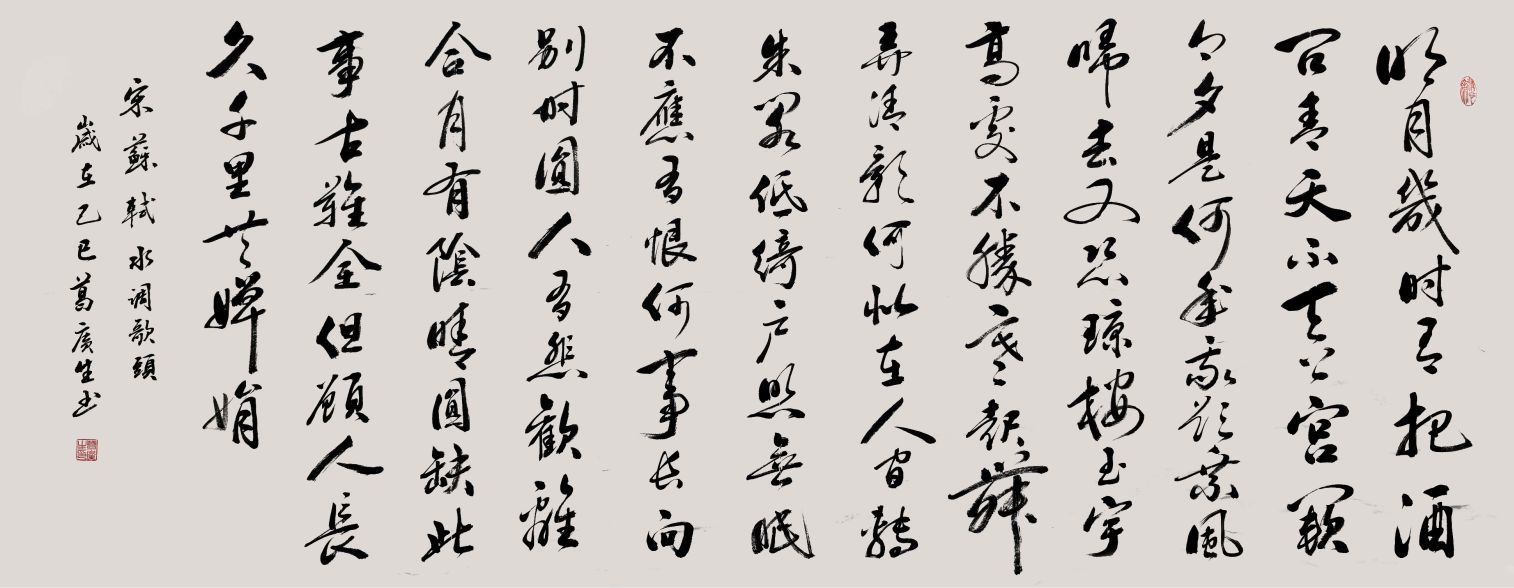 明月幾时有把酒
问青天不天上宫闕
今夕是何年我欲乘風
歸去又恐琼楼玉宇
高處不勝寒起舞
弄清影何似在人间轉
朱阁低綺户照無眠
不應有恨何事长向
别时圓人有悲歡離
合月有陰晴圓缺此
事古難全但願人長
久千里共嬋娟
宋蘇軾水调歌頭
歲在乙巳葛廣生书